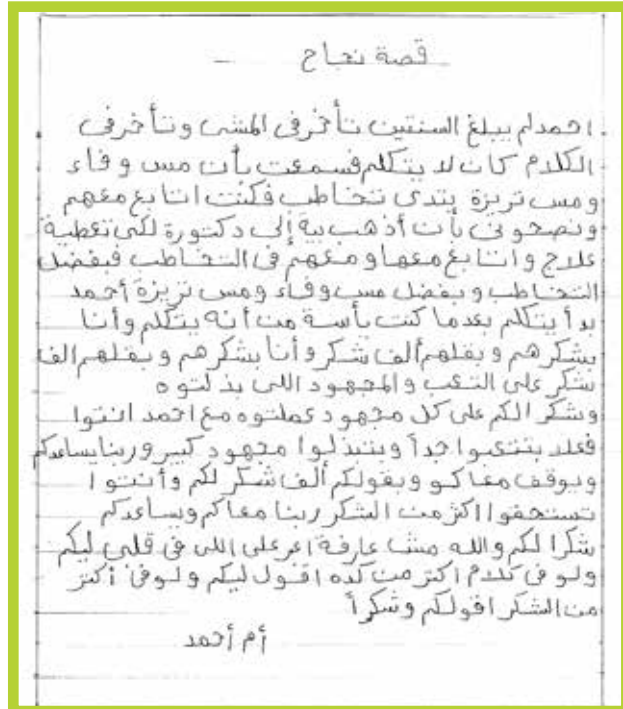 قصة نجاح
احمد لم يبلغ السنتين تأخر فى المشى وتأخر فى
الكلام كان لا يتكلم فسمعت بأن مس وفاء
ومس تريزة بتدى تخاطب فكنت اتابع معهم
ونصحونى بأن أذهب بية إلى دكتورة لكى تعطية
علاج واتابع معها ومعهم فى التخاطب فبفضل
التخاطب وبفضل مس وفاء ومس تريزة أحمد
بدأ يتكلم بعدما كنت يأسة من أنه يتكلم وأنا
بشكرهم وبقلهم ألف شكر وأنا بشكرهم وبقلهم الف
شكر على التعب والمجهود اللى بذلتوه
وشكر الكم على كل مجهود عملتوه مع احمد انتوا
فعلا بتتعبوا جداً وبتبذلوا مجهود كبير وربنا يساعدكم
ويوقف معاكو وبقولكم ألف شكر لكم وأنتوا
تستحقوا اكثر من الشكر ربنا معاكم ويساعدكم
شكرا لكم والله مش عارفة اعبر على اللى فى قلبى ليكم
ولو فى كلام اكتر من كده اقول ليكم ولو فى أكتر
من الشكر اقولكم وشكراً
أم أحمد